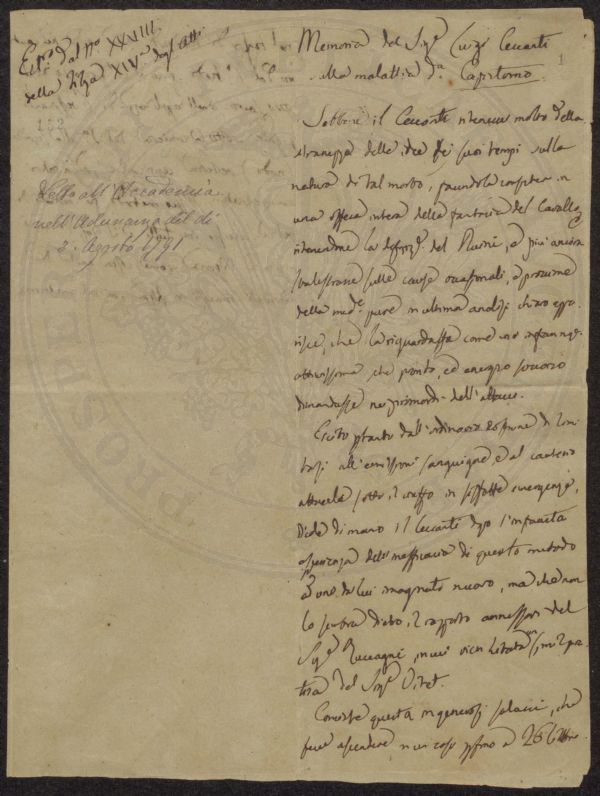 Estr. dal N.º XXVIII.
della Filza XIV.ª degli Atti
182
Letto all'Accademia
nell'Adunanza del dì
2. Agosto 1791
Memoria del Sig.e Luigi Ceccarti
sulla malattia d.a Capistorno.
1
Sebbene il Ceccarti ritenesse molto della
stranezza delle idee de' suoi tempi sulla
natura di tal morbo, facendola consister in
una offesa intera della fantasia del Cavallo,
ritenendone la del Ruini, e più ancora
sulle cause occasionali, o prossime
della med.e pure in ultima analisi chiaro appa-
risce, che la riguardasse come una
attivissima che pronto, ed energico soccorso
dimandasse ne' primordi dell'attacco.
Escito pertanto dall'ordinario di limi-
tarsi all'emissioni sanguigne, e al cauterio
attuale sotto il ciuffo in siffatte emergenze,
Diede di mano il Ceccarti dopo l'infausta
esperienza dell'inefficacia di questo metodo
a uno da lui imaginato nuovo, ma che non
lo sembra dietro il rapporto annessovi del
Sig.e Buccagni, in cui vien citata
del Sig.e Vitet.
Consiste questa in generosi salassi, che
fece ascendere in un caso perfino a 26 libbre